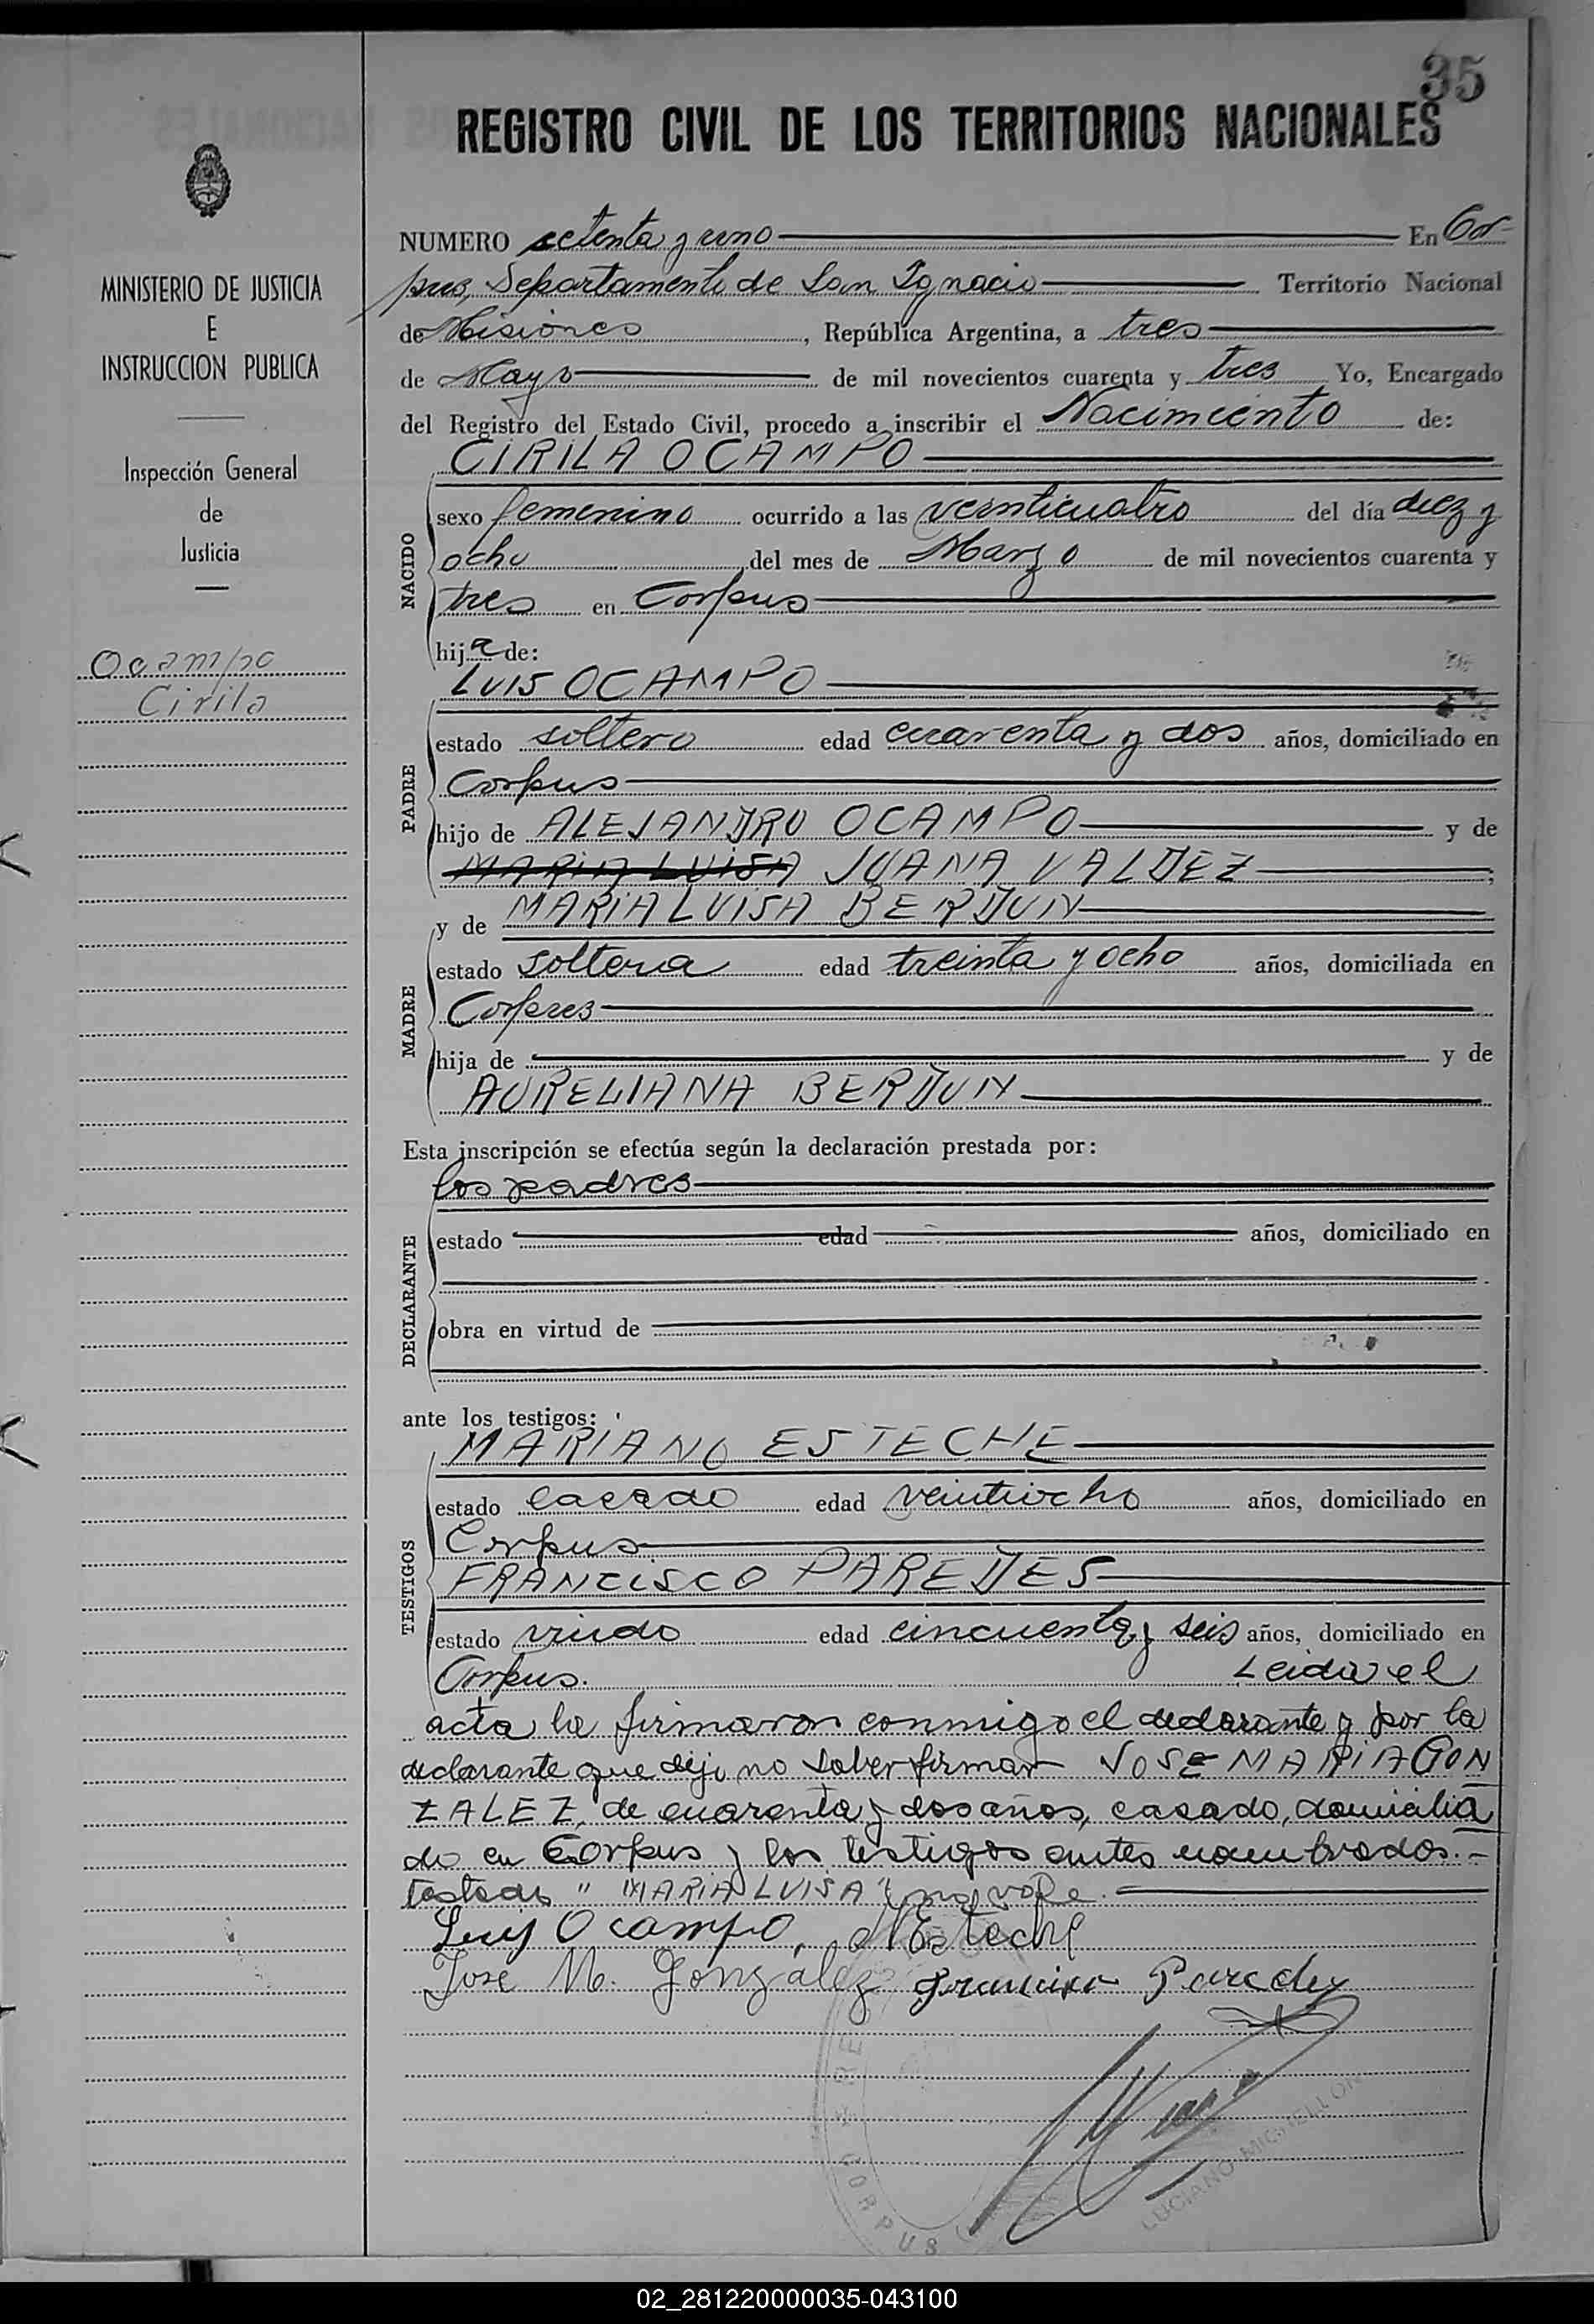 35
REGISTRO CIVIL DE LOS TERRITORIOS NACIONALES
MINISTERIO DE JUSTICIA
E
INSTRUCCION PUBLICA
Inspección General
de
Justicia
Ocampo
Cirila
NUMERO setenta y uno En Cor-
pus, Departamento de San Ignacio Territorio Nacional
de Misiones, República Argentina, a tres
de Mayo de mil novecientos cuarenta y tres Yo, Encargado
del Registro del Estado Civil, procedo a inscribir el Nacimiento de:
CIRILA OCAMPO
NACIDO
sexo femenino ocurrido a las veinticuatro del día diez y
ocho del mes de Marzo de mil novecientos cuarenta y
tres en Corpus
hija de:
LUIS OCAMPO
PADRE
estado soltero edad cuarenta y dos años, domiciliado en
Corpus
hijo de ALEJANDRO OCAMPO y de
MARIA LUISA JUANA VALDEZ;
y de MARIA LUISA BERDUN
MADRE
estado soltera edad treinta y ocho años, domiciliada en
Corpus
hija de y de
AURELIANA BERDUN
Esta inscripción se efectúa según la declaración prestada por:
los padres
DECLARANTE
estado edad años, domiciliado en
obra en virtud de
ante los testigos:
MARIANO ESTECHE
TESTIGOS
estado casado edad veintiocho años, domiciliado en
Corpus
FRANCISCO PAREDES
estado viudo edad cincuenta y seis años, domiciliado en
Corpus. Leida el
acta la firmaron conmigo el declarante y por la
declarante que dijo no saber firmar JOSE MARIA GON
ZALEZ, de cuarenta y dos años, casado, domicilia
do en Corpus y los testigos antes nombrados.-
testado " MARIA LUISA " no vale.
Luis Ocampo, M Esteche
José M. González Francisco Paredes
CORPUS
LUCIANO MICHELLON
02_281220000035-043100